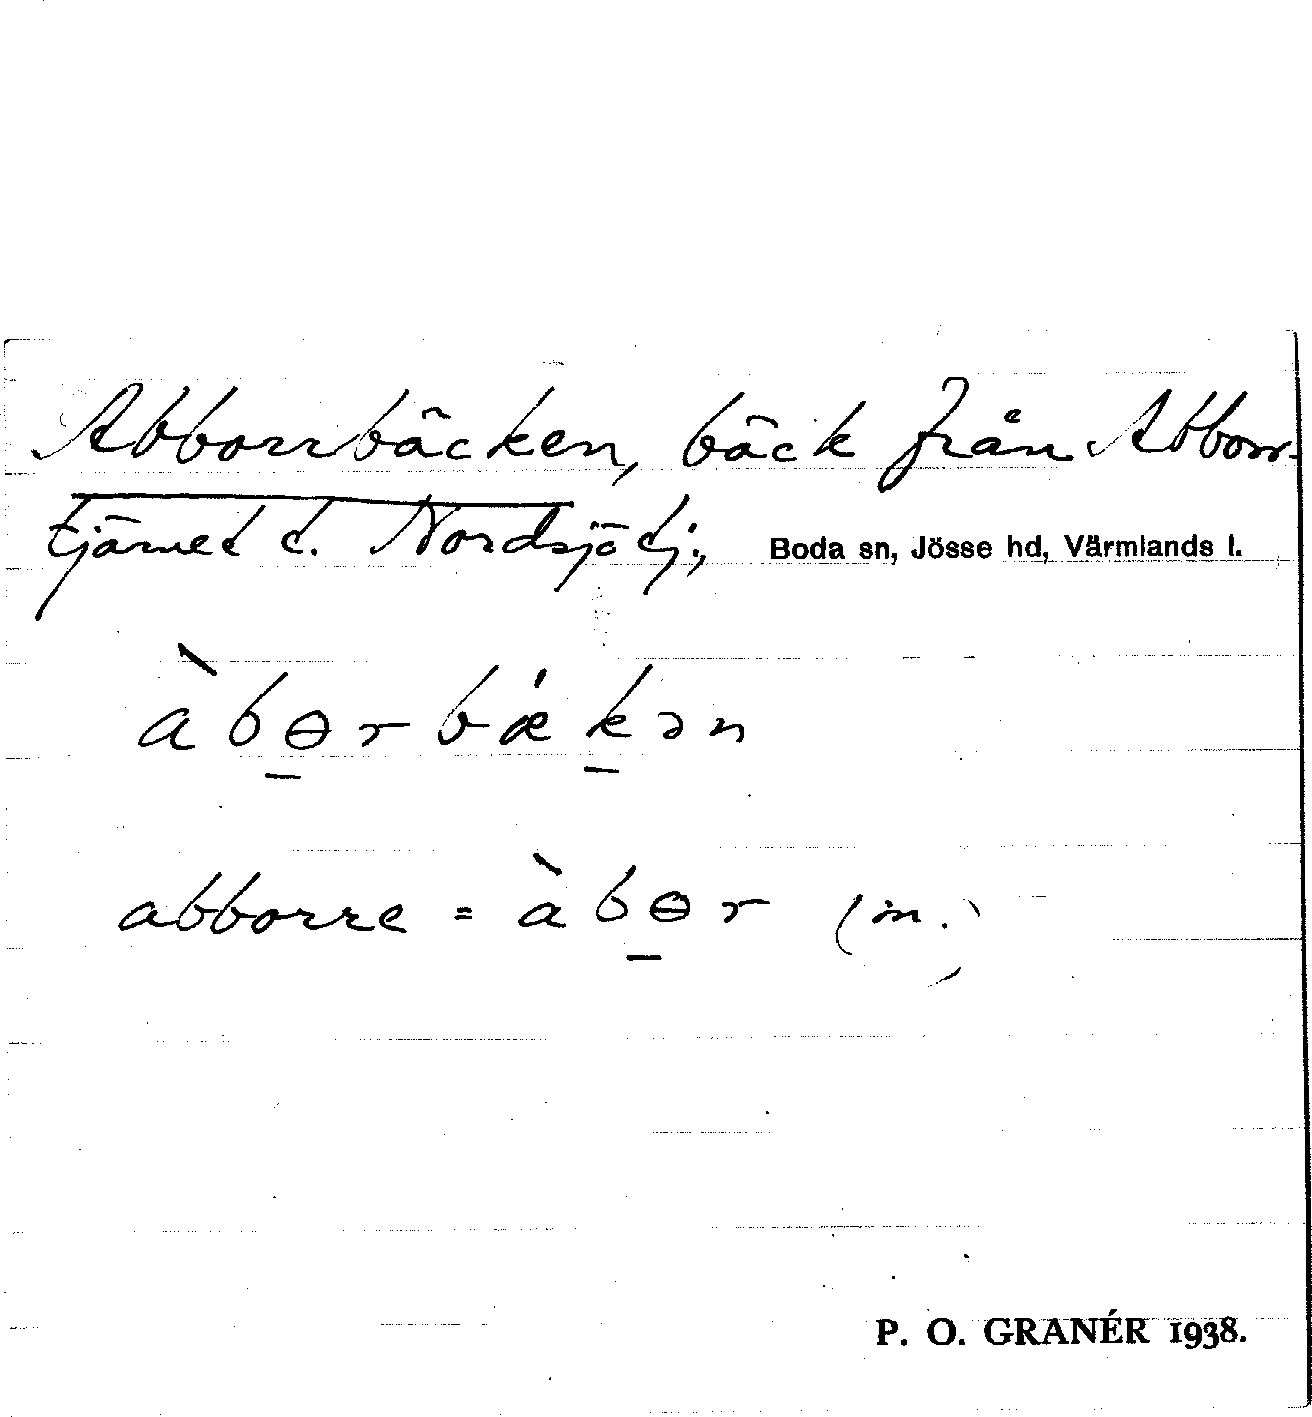 Abborrbäcken, bäck från Abborr-
tjärnet t. Nordsjötj., Boda sn, Jösse hd, Värmlands l.
àbɵrbǽkən
abborre = àbɵr (m.)
P. O. GRANÉR 1938.